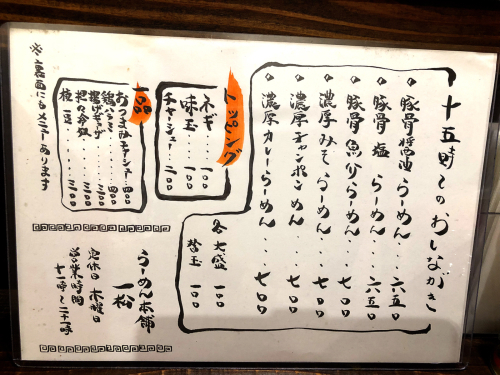 十五時〜のおしながき
・豚骨醤油らーめん・・・六五〇
・豚骨塩らーめん・・・六五〇
・豚骨魚介らーめん・・・七〇〇
・濃厚みそらーめん・・・七〇〇
・濃厚チャンポンめん・・・七〇〇
・濃厚カレーらーめん・・・七〇〇
各大盛 一〇〇
替玉 一〇〇
トッピング
ネギ・・・一〇〇
味玉・・・一〇〇
チャーシュー・・・二〇〇
一品
おつまみチャーシュー・・・四〇〇
揚げギョーザ・・・三〇〇
枝豆・・・二〇〇
※裏面にもメニューあります
らーめん本舗
一松
定休日 木曜日
営業時間
十一時〜二十一時